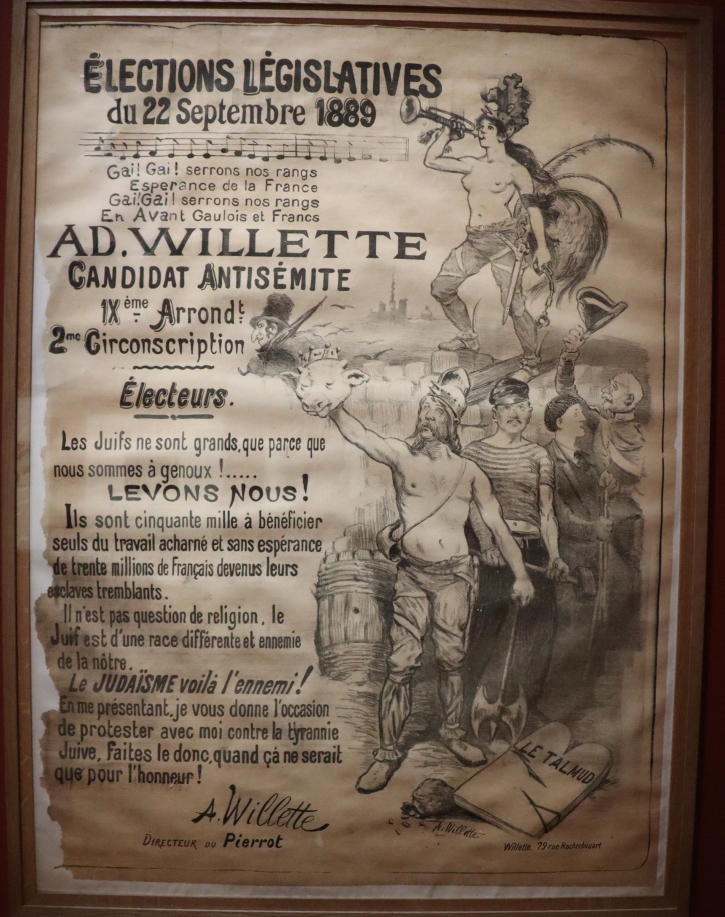 ÉLECTIONS LÉGISLATIVES
du 22 Septembre 1889
Gai! Gai! serrons nos rangs
Esperance de la France
Gai! Gai! serrons nos rangs
En Avant Gaulois et Francs
AD. WILLETTE
CANDIDAT ANTISÉMITE
IXème Arrondt
2me Circonscription
Électeurs.
Les Juifs ne sont grands, que parce que
nous sommes à genoux !.....
LEVONS NOUS!
Ils sont cinquante mille à bénéficier
seuls du travail acharné et sans espérance
de trente millions de Français devenus leurs
esclaves tremblants.
Il n'est pas question de religion, le
Juif est d'une race différente et ennemie
de la nôtre.
Le JUDAÏSME voilà l'ennemi!
En me présentant, je vous donne l'occasion
de protester avec moi contre la tyrannie
Juive, faites le donc, quand çà ne serait
que pour l'honneur!
A. Willette
DIRECTEUR DU Pierrot
LE TALMUD
A. Willette
Willette. 79 rue Rochechouart